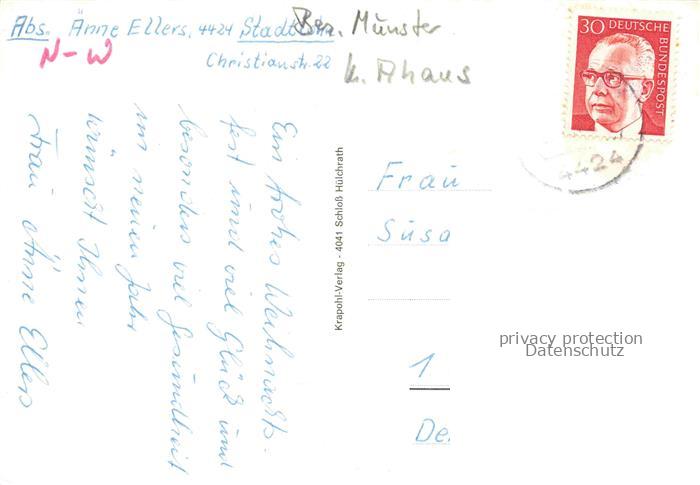 Abs. Änne Ellers, 4424 Stadtlohn
Christianstr. 22
N-W
Bez. Münster
k. Ahaus
30 DEUTSCHE BUNDESPOST
4424
Ein frohes Weihnachts-
fest und viel Glück und
besonders viel Gesundheit
im neuen Jahr
wünscht Ihnen
Frau Änne Ellers
Krapohl-Verlag - 4041 Schloß Hülchrath
Frau
Susa
1
De
privacy protection
Datenschutz